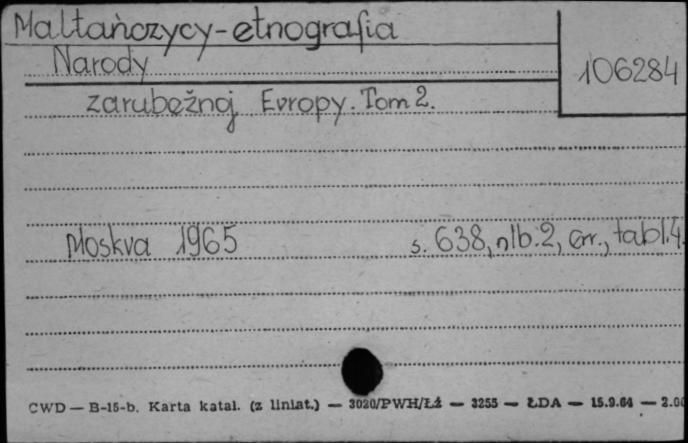 Maltańczycy-etnografia
Narody
106284
zarubežnoj Evropy. Tom 2.
Moskva 1965 s. 638, nlb. 2, err., tabl. 4.
CWD — B-15-b. Karta katal. (z liniat.) — 3020/PWH/Łź — 3255 — ŁDA — 15.9.64 — 2.00